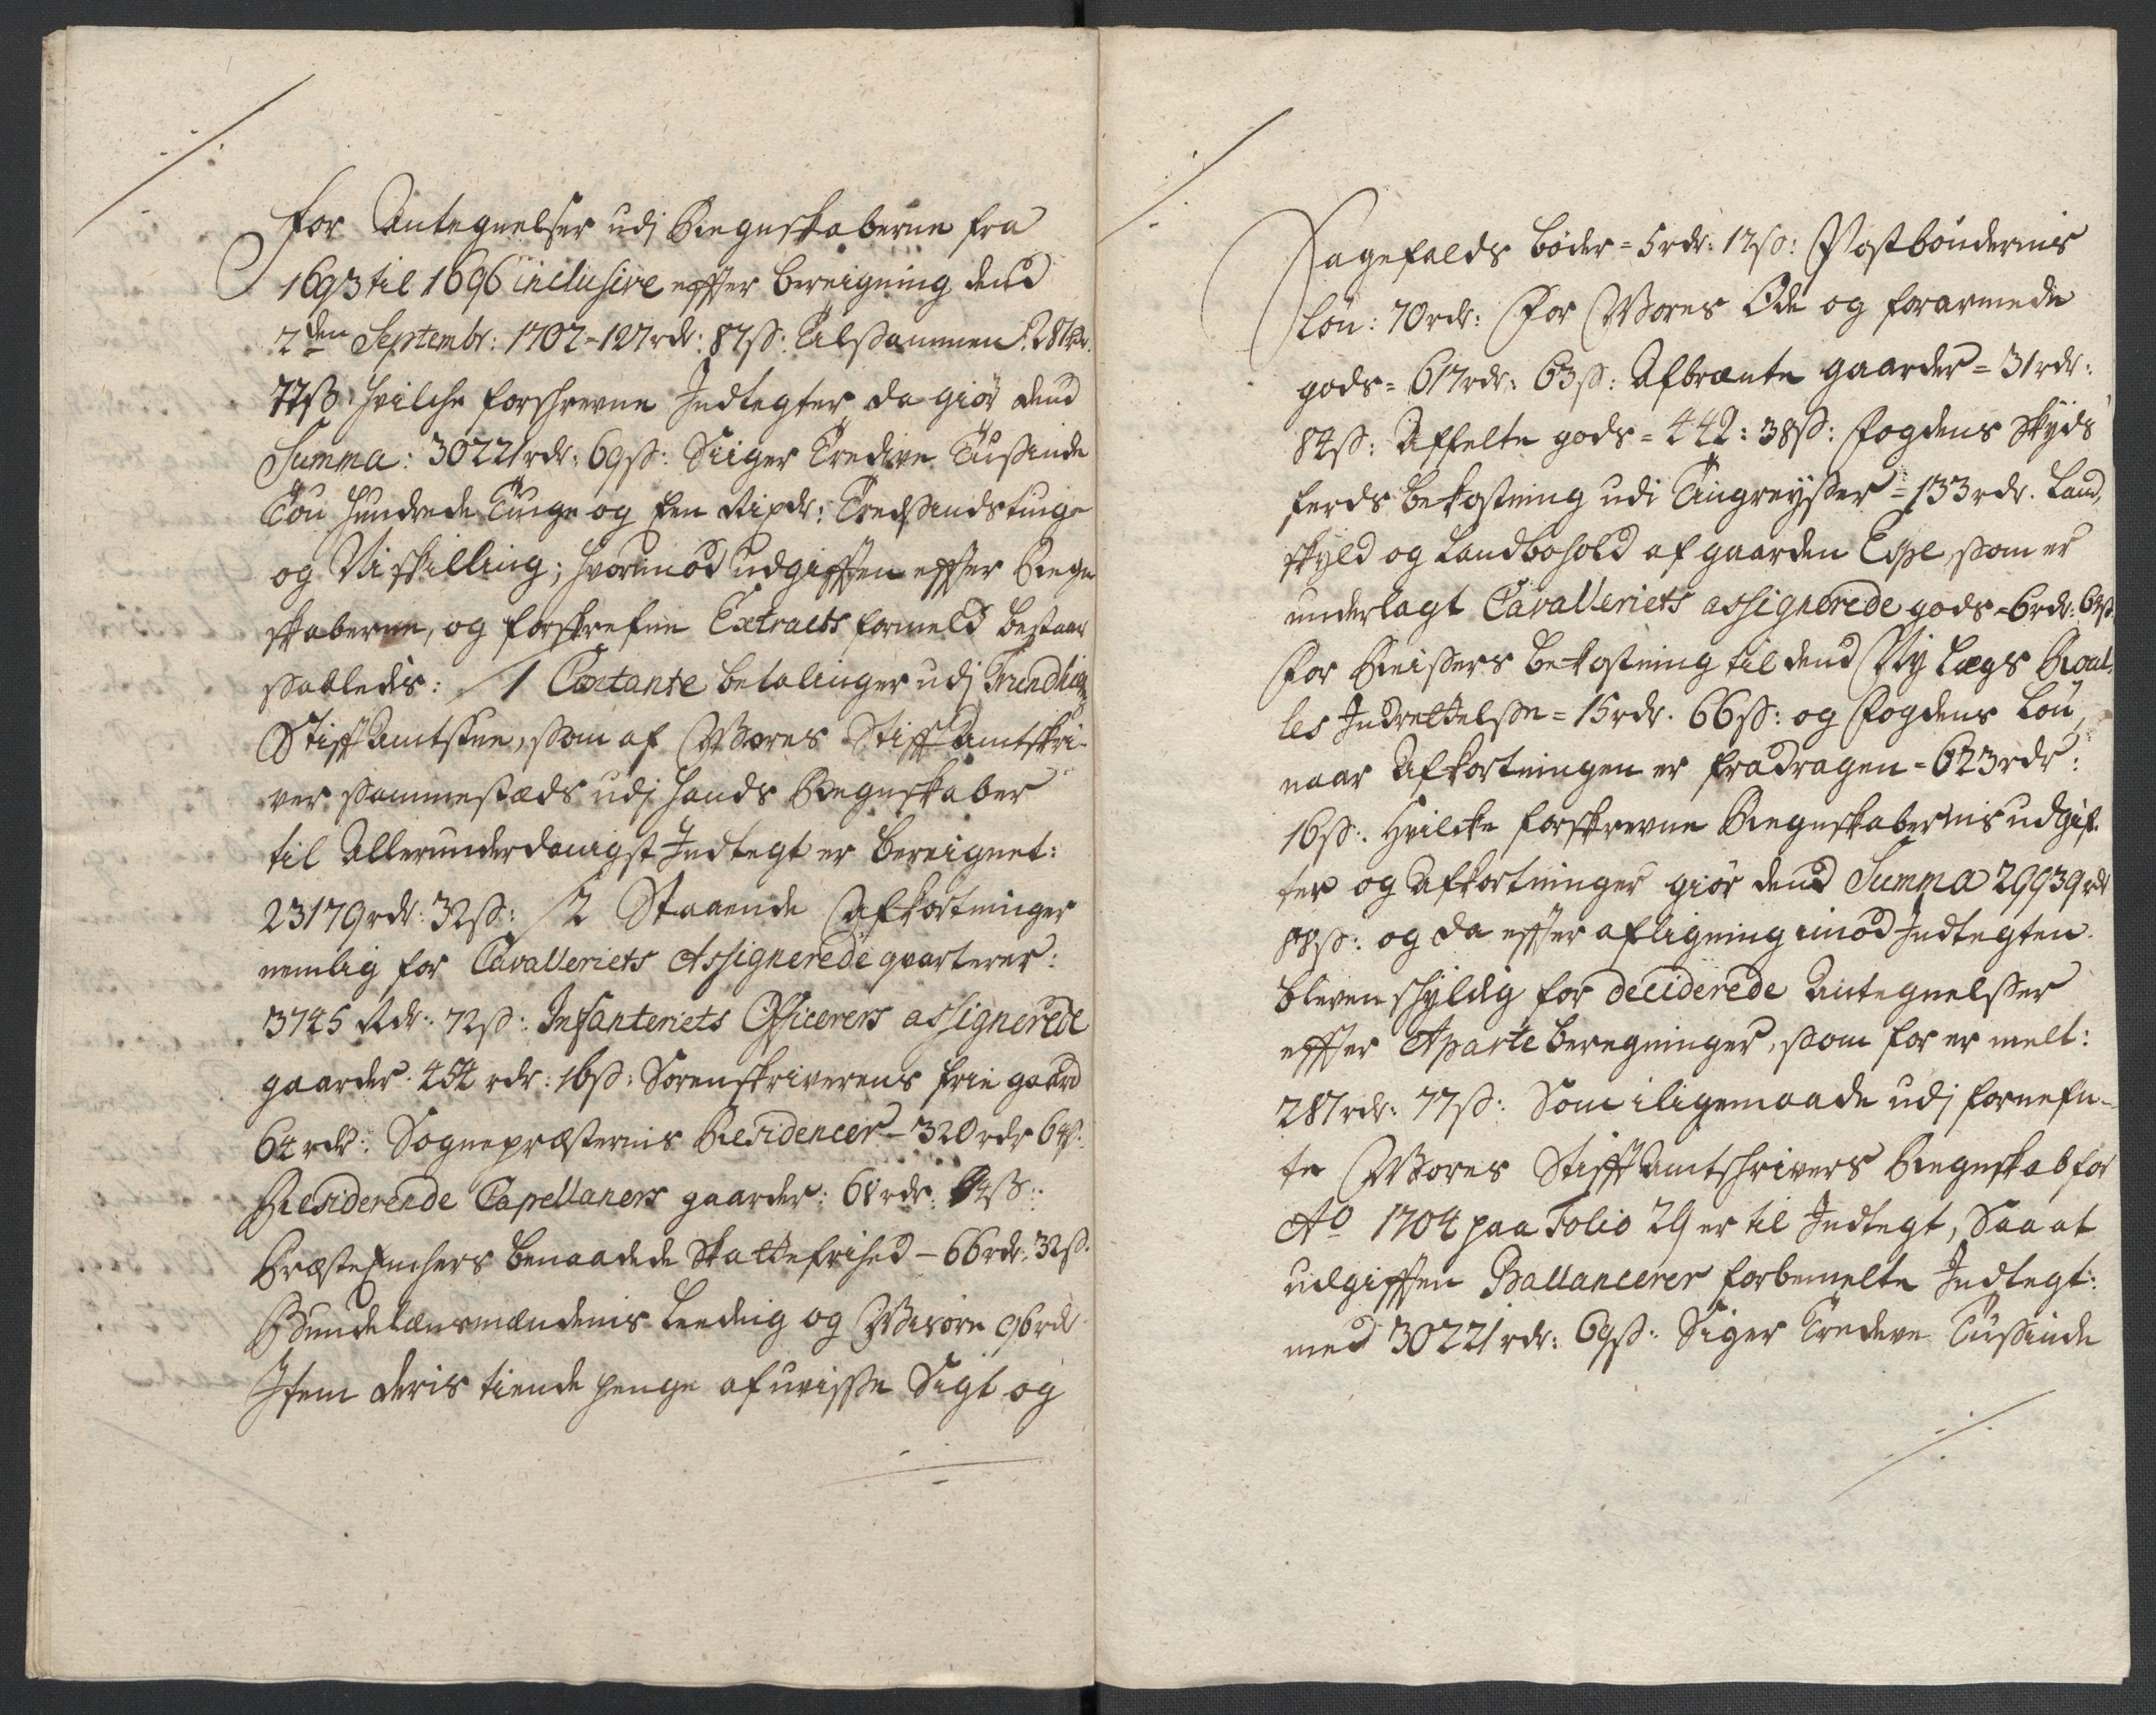 for Antegnelser udj Regnskaberne fra
1693 til 1696 inclusive effter bereigning dend
2den Septembr: 1702 - 127 rdr: 87 ß: Tilsammen: 281 rdr.
77 ß hvilche forschrevne Indtegter da giör dend
Summa: 30221 rdr: 69 ß: Siiger Tredive Tußinde
Tou hundrede Tiuge og Een Rixdr: Tredsindstiuge
og Ni skilling; hvorimod udgifften effter Regn
skaberne, og forskrefne Extracts formeld bestaar
saaledis: /1 Contante betalinger udj Trundhiems
Stifft Amtstue, som af Wores Stifft Amtskri-
ver sammestæds udj hands Regnskaber
til Allerunderdanigst Indtegt er bereignet:
23179 rdr: 32 ß: /2 Staaende Afkortninger
nemlig for Cavalleriets Assignerede qvarterer:
3745 Rdr: 72 ß: Infanteriets Officerers assignerede
gaarder: 454 rdr: 16 ß: Sorenskriverens frie gaard
64 rdr: Sognepræsternis Residencer - 320 rdr 64 ß:
Residerende Capellaners gaarder: 61 rdr: 84 ß:
Præste Enchers benaadede Skattefrihed - 66 rdr: 32 ß.
Bundelænsmændenis leedig og Wisøre 96 rdr
Item deris tiende penge af uvisse Sigt og
Sagefalds bøder = 5 rdr: 12 ß: Postbøndernis
løn: 70 rdr: For Wores Øde og forarmede
gods = 617 rdr: 63 ß: Afbrænte gaarder = 31 rdr:
84 ß: Affelte gods = 442: 38 ß: Fogdens Skyds
ferds bekostning udi Tingreyßer = 133 rdr. Land,
skyld og Landbohold af gaarden Espe, som er
underlagt Cavalleriets assignerede gods = 6 rdr. 64 ß.
For Reisers bekostning til dend Ny Lægs Roul,
les Indrettelse = 15 rdr. 66 ß: og Fogdens Løn,
naar Afkortningen er fradragen = 623 rdr:
16 ß: Hvilcke forskrevne Regnskabernis udgif,
ter og Afkortninger giör dend Summa 29939 rdr
88 ß: og da effter afligning imod Indtegten
bleven schyldig for deciderede Antegnelßer
effter Aparte beregninger, som for er melt:
281 rdr: 77 ß: Som iligemaade udj fornefn-
te Wores Stifft Amtschrivers Regnskab for
Ao 1704 paa Folio 29 er til Indtegt, Saa at
udgifften Ballancerer forbemelte Indtegt:
med 30221 rdr: 69 ß: Siger Tredeve Tußinde